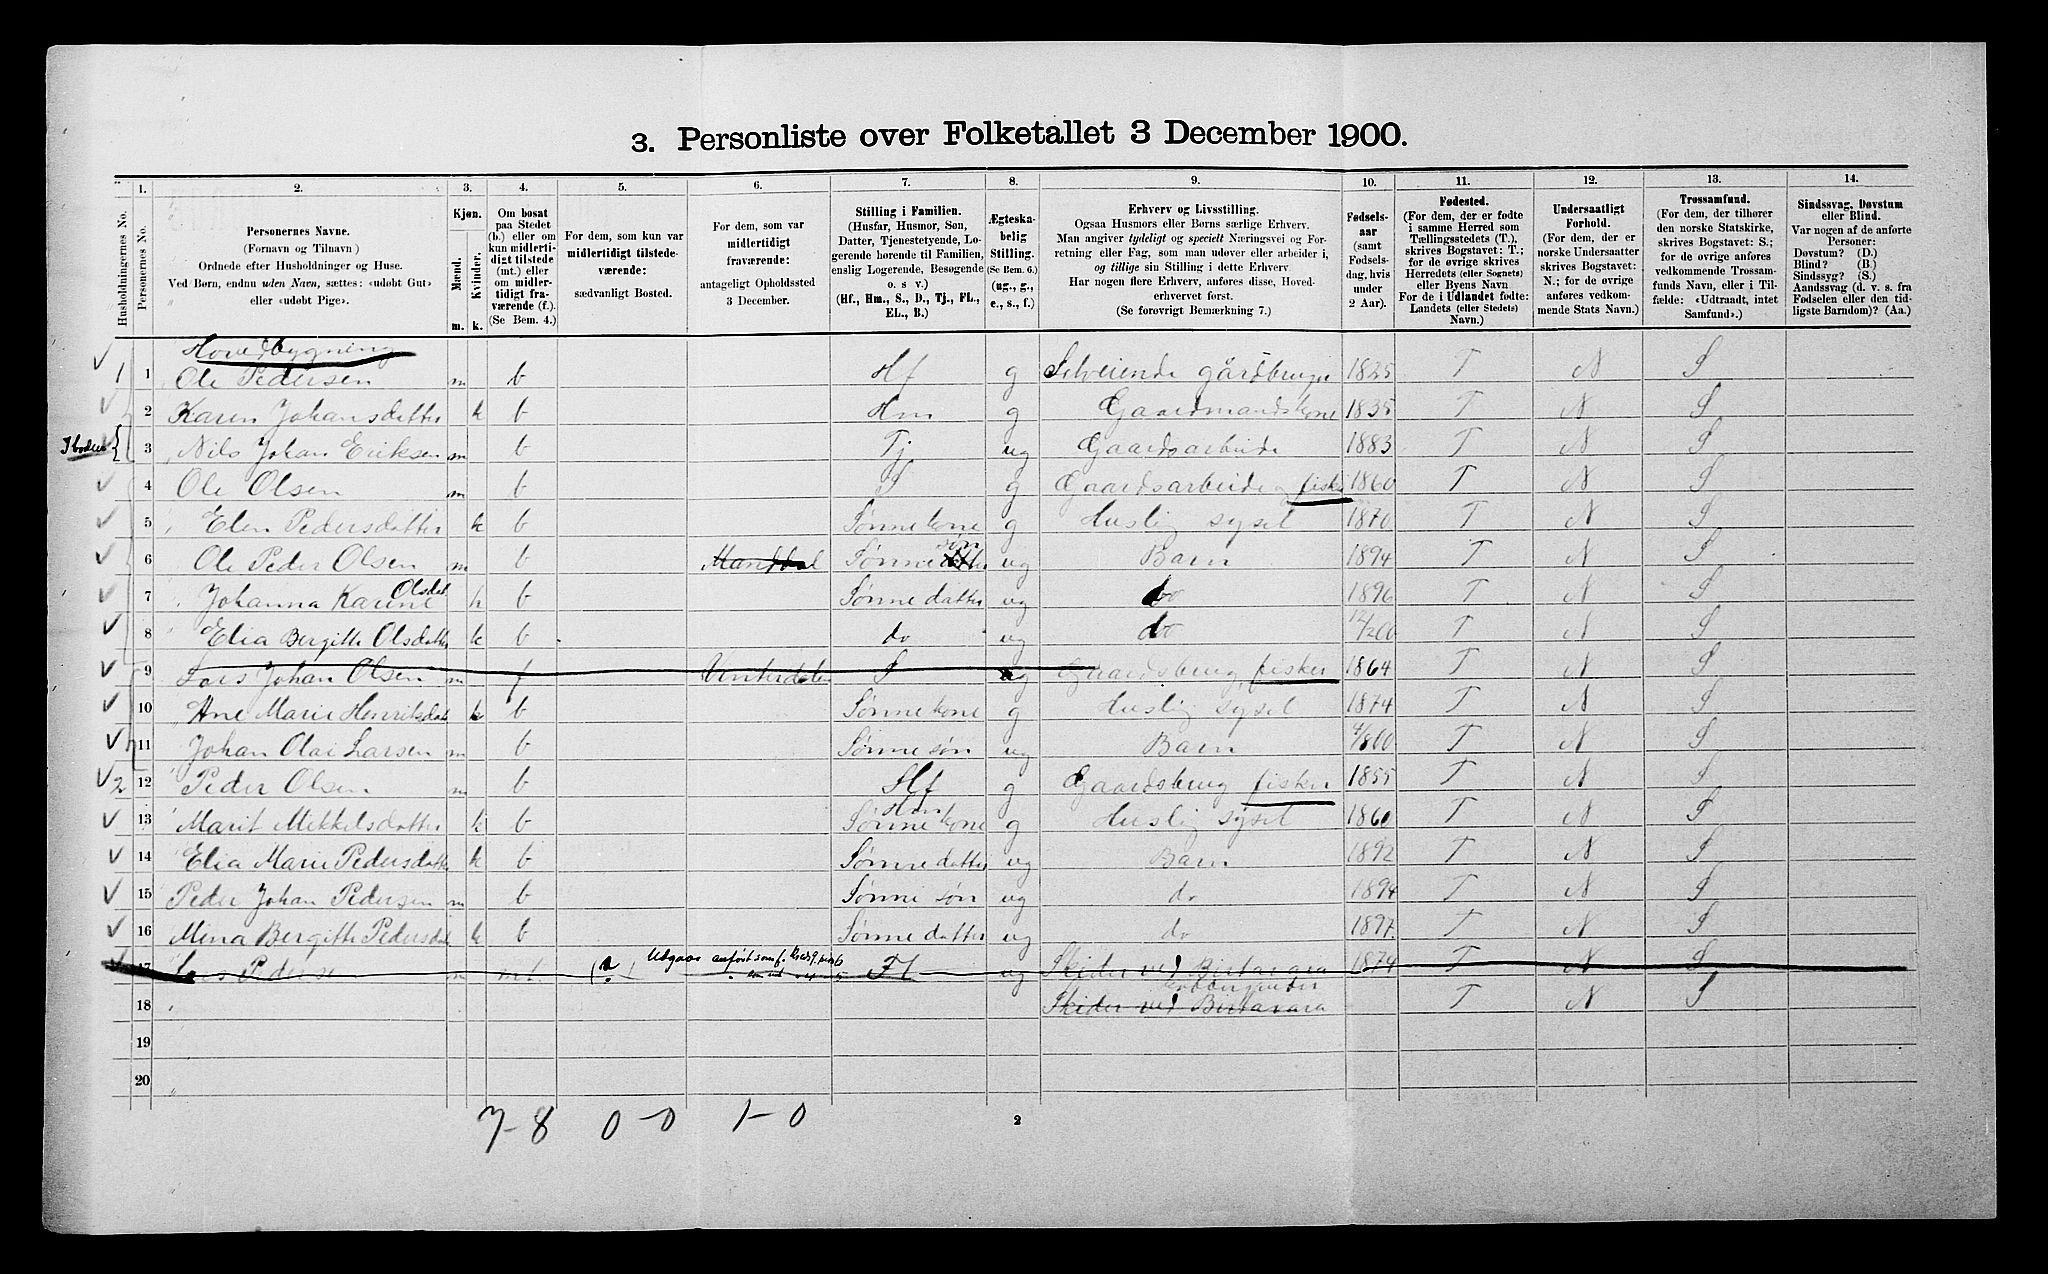 3. Personliste over Folketallet 3 December 1900.
Husholdningernes No.
1. Personernes No.
2. Personernes Navne. (Fornavn og Tilnavn) Ordnede efter Husholdninger og Huse. Ved Børn, endnu uden Navn, sættes: «udøbt Gut» eller «udøbt Pige».
3. Kjøn. Mænd. m. Kvinder. k.
4. Om bosat paa Stedet (b.) eller om kun midlertidigt tilstede (mt.) eller om midlertidigt fraværende (f.). (Se Bem. 4.)
5. For dem, som kun var midlertidigt tilstedeværende: sædvanligt Bosted.
6. For dem, som var midlertidigt fraværende: antageligt Opholdssted 3 December.
7. Stilling i Familien. (Husfar, Husmor, Søn, Datter, Tjenestetyende, Logerende hørende til Familien, enslig Logerende, Besøgende o. s v.) (Hf., Hm., S., D., Tj., FL., EL., B.)
8. Ægteskabelig Stilling. (Se Bem. 6.) (ug., g., e., s., f.)
9. Erhverv og Livsstilling. Ogsaa Husmors eller Børns særlige Erhverv. Man angiver tydeligt og specielt Næringsvei og Forretning eller Fag, som man udøver eller arbeider i, og tillige sin Stilling i dette Erhverv. Har nogen flere Erhverv, anføres disse, Hovederhvervet først. (Se forøvrigt Bemærkning 7.)
10. Fødselsaar (samt Fødselsdag, hvis under 2 Aar).
11. Fødested. (For dem, der er fødte i samme Herred som Tællingsstedets (T.), skrives Bogstavet: T.; for de øvrige skrives Herredets (eller Sognets) eller Byens Navn For de i Udlandet fødte: Landets (eller Stedets) Navn.)
12. Undersaatligt Forhold. (For dem, der er norske Undersaatter skrives Bogstavet: N.; for de øvrige anføres vedkommende Stats Navn.)
13. Trossamfund. (For dem, der tilhører den norske Statskirke, skrives Bogstavet: S.; for de øvrige anføres vedkommende Trossamfunds Navn, eller i Tilfælde: «Udtraadt, intet Samfund».)
14. Sindssvag, Døvstum eller Blind. Var nogen af de anførte Personer: Døvstum? (D.) Blind? (B.) Sindssyg? (S.) Aandssvag (d. v. s. fra Fødselen eller den tidligste Barndom)? (Aa.)
Hovedbygning
1 1 Ole Pedersen m b Hf g Selveiende gårdbruger 1825 T N S
2 Karen Johansdatter k b Hm g Gaardmandskone 1835 T N S
3 Nils Johan Eriksen m b Tj ug Gaardsarbeide 1883 T N S
4 Ole Olsen m b S g Gaardsarbeide og fisker 1860 T N S
5 Elen Pedersdatter k b Sønnekone g Huslig sysel 1870 T N S
6 Ole Peder Olsen m b Manddal Sønne søn ug Barn 1894 T N S
7 Johanna Karine Olsdat. k b Sønnedatter ug do 1896 T N S
8 Elia Bergitte Olsdatter k b do ug do 12/2 00 T N S
9 Lars Johan Olsen m f Vinterdalen S ug Gaardsbrug, fisker 1864 T N S
10 Ane Marie Henriksdat k b Sønnekone g Huslig sysel 1874 T N S
11 Johan Olai Larsen m b Sønnesøn ug Barn 4/8 00 T N S
2 12 Peder Olsen m b Hf g Gaardsbrug fisker 1855 T N S
13 Marit Mikkelsdatter k b Hm Sønnekone g Huslig sysel 1860 T N S
14 Elia Marie Pedersdatter k b Sønnedatter ug Barn 1892 T N S
15 Peder Johan Pedersen m b Sønne søn ug do 1894 T N S
16 Mina Bergitte Pedersdat k b Sønnedatter ug do 1897 T N S
17 Lars Pedersen m mt. (?) Udgaar Fl ug Skeider ved Birtavara 1874 T N S
18 Skeider ved Birtavara T N S
19
20
7-8 0-0 1-0
2